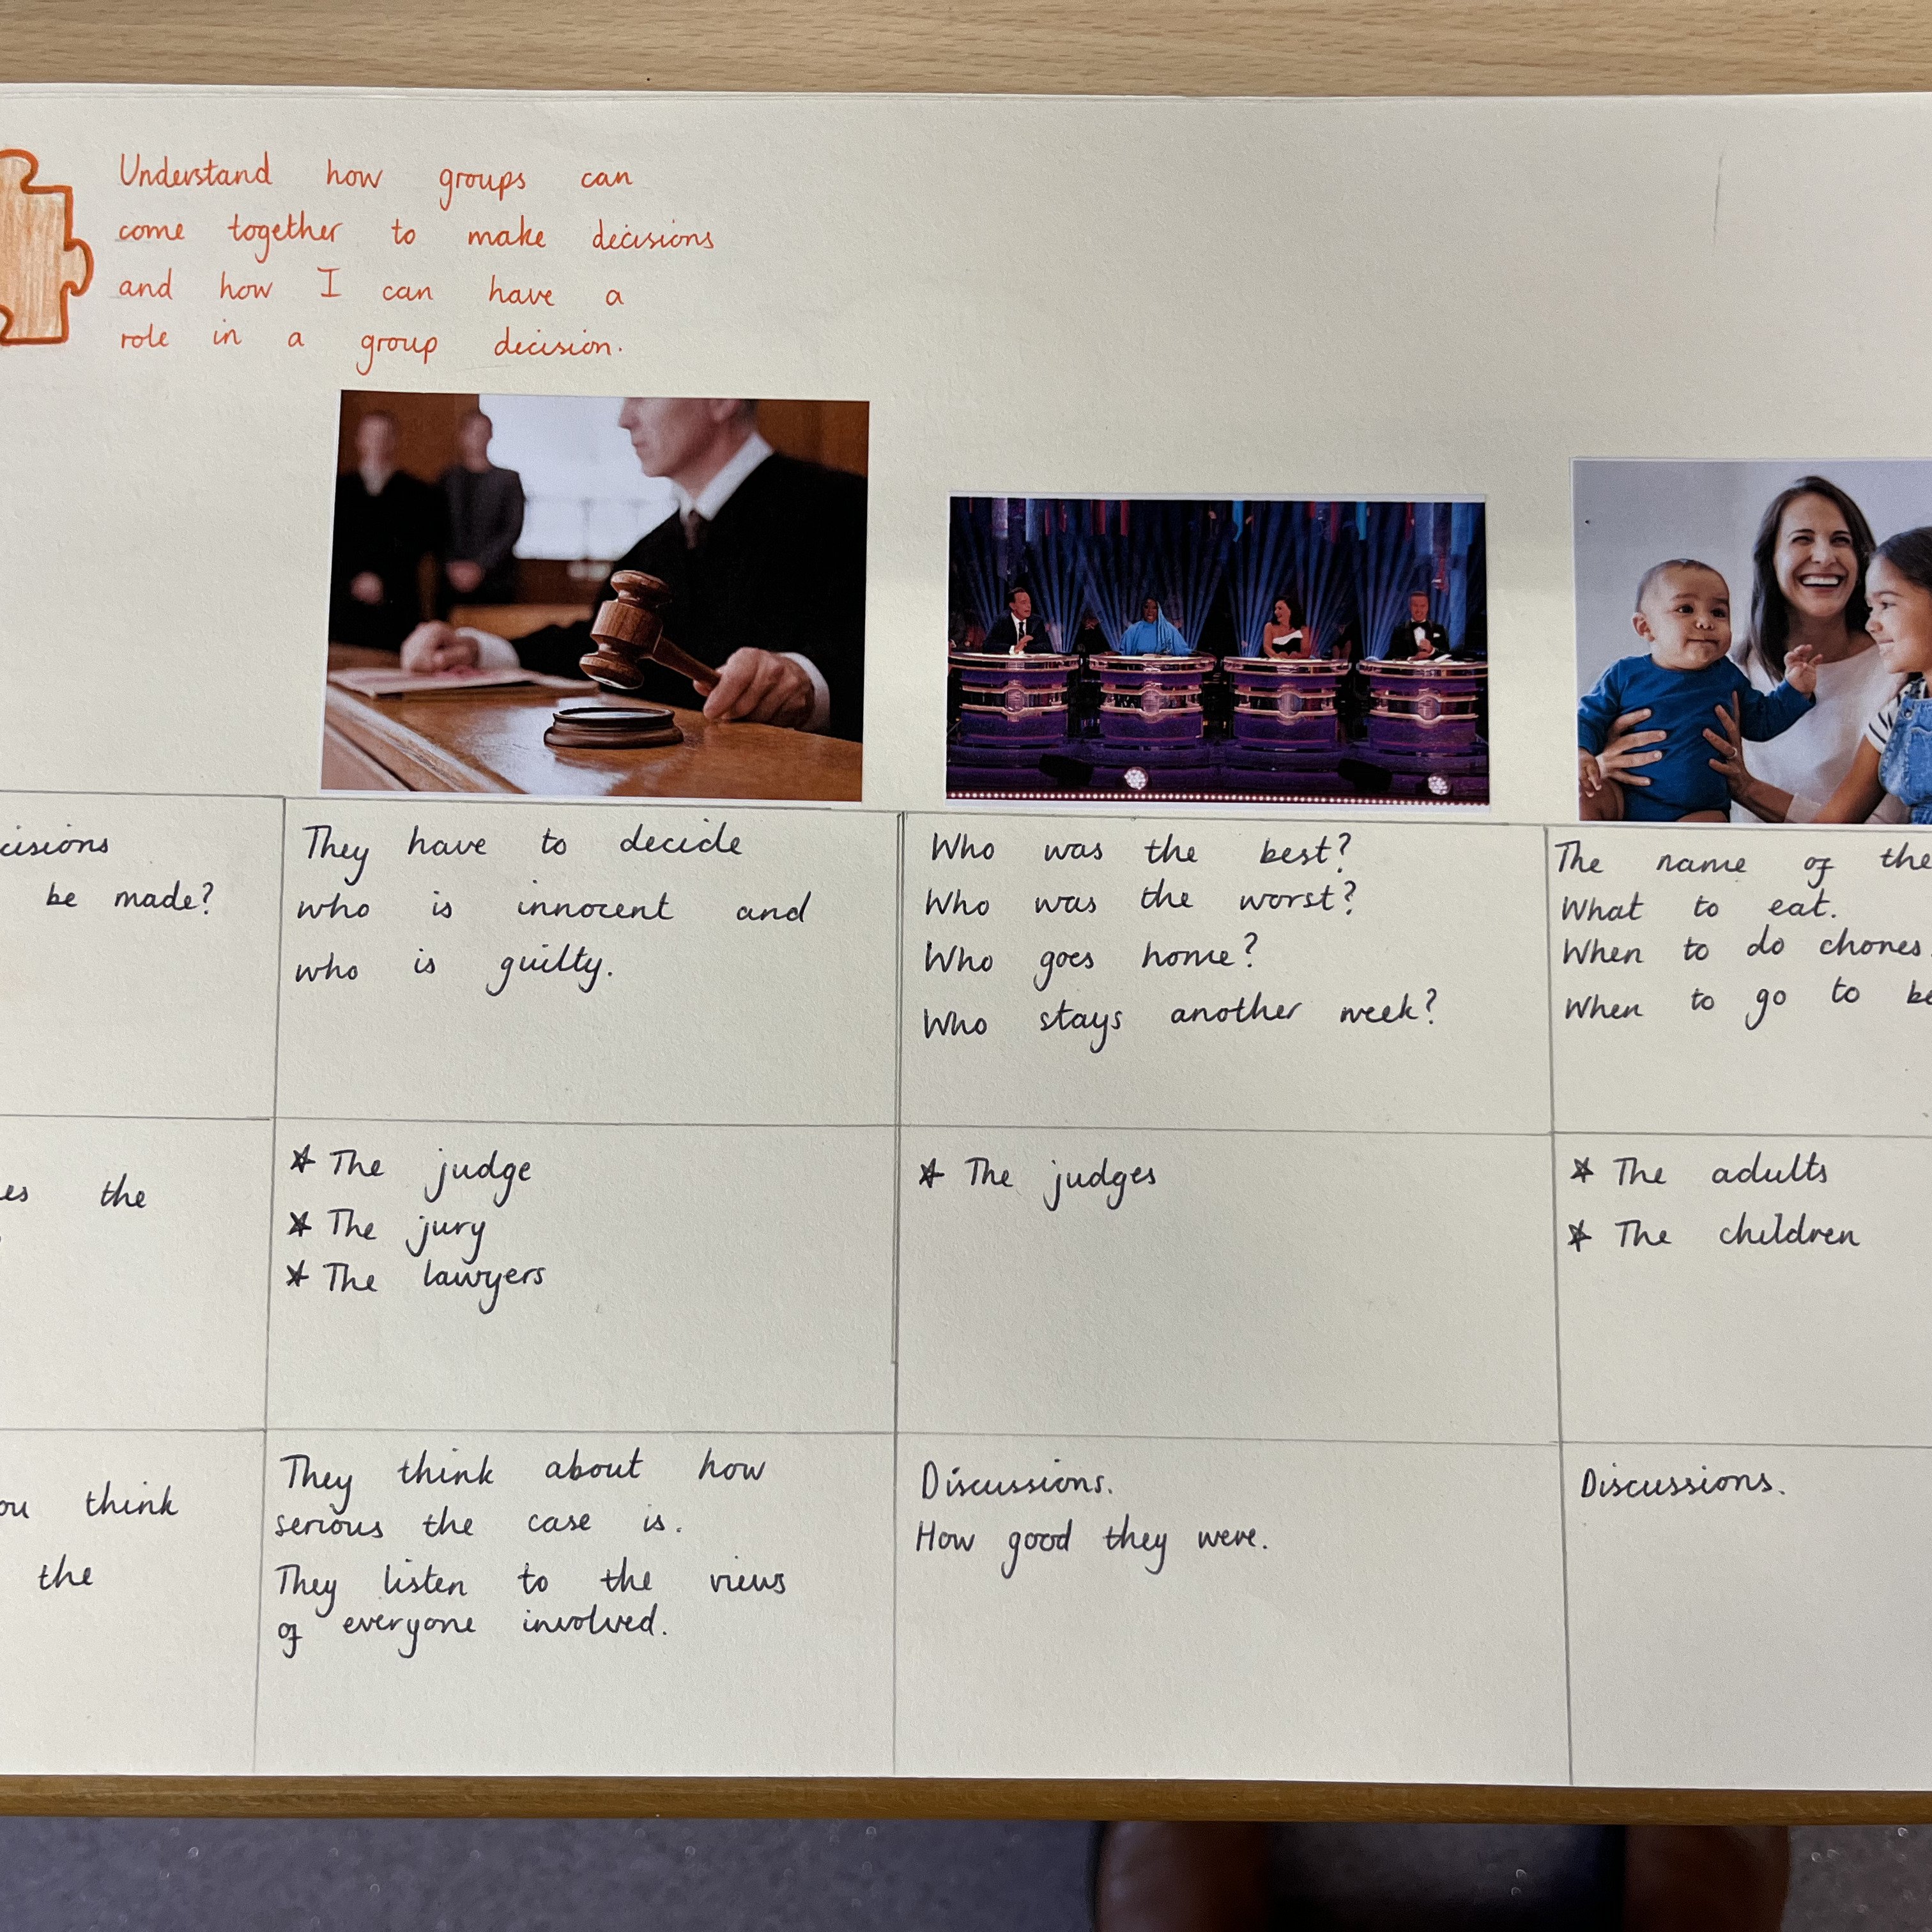 Understand how groups can
come together to make decisions
and how I can have a
role in a group decision.
be made?
They have to decide
who is innocent and
who is guilty.
Who was the best?
Who was the worst?
Who goes home?
Who stays another week?
The name of the
What to eat.
When to do chores.
When to go to
the
* The judge
* The jury
* The lawyers
* The judges
* The adults
* The children
think
the
They think about how
serious the case is.
They listen to the views
of everyone involved.
Discussions.
How good they were.
Discussions.